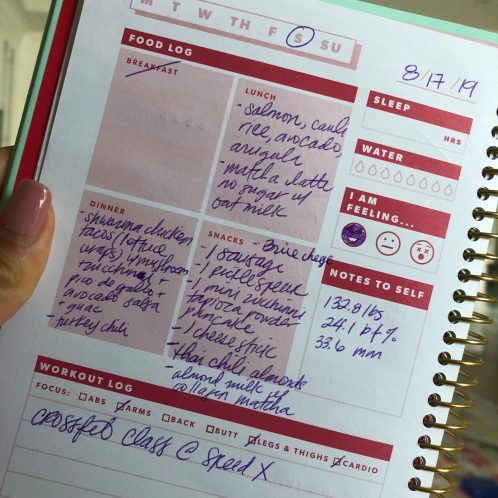 M T W TH F S SU
FOOD LOG
8/17/19
BREAKFAST
LUNCH
- salmon, cauli
rice, avocado,
arugula
- matcha latte
no sugar w/
oat milk
SLEEP
HRS
WATER
I AM
FEELING...
DINNER
- shwarma chicken
tacos (lettuce
wraps) w/ mushroom
+ zucchinis +
pico de gallo +
avocado salsa
+ guac
- turkey chili
SNACKS
- Brie cheese
- 1 sausage
- 1 pickle spear
- 1 mini zucchini
tapioca powder
pancake
- 1 cheese stick
- thai chili almonds
- almond milk w/
collagen matcha
NOTES TO SELF
132.8 lbs
24.1 bf%
33.6 mm
WORKOUT LOG
FOCUS: ABS ARMS BACK BUTT LEGS & THIGHS CARDIO
crossfeb class @ Speed X